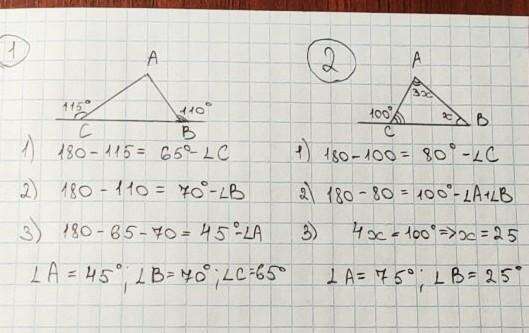 1
A
115° 110°
C B
1) 180-115= 65°-∠C
2) 180-110=70°-∠B
3) 180-65-70=45°-∠A
∠A=45°; ∠B=70°; ∠C=65°
2
A
3x
100° x
C B
1) 180-100= 80°-∠C
2) 180-80=100°-∠A+∠B
3) 4x=100°=>x=25
∠A=75°; ∠B=25°